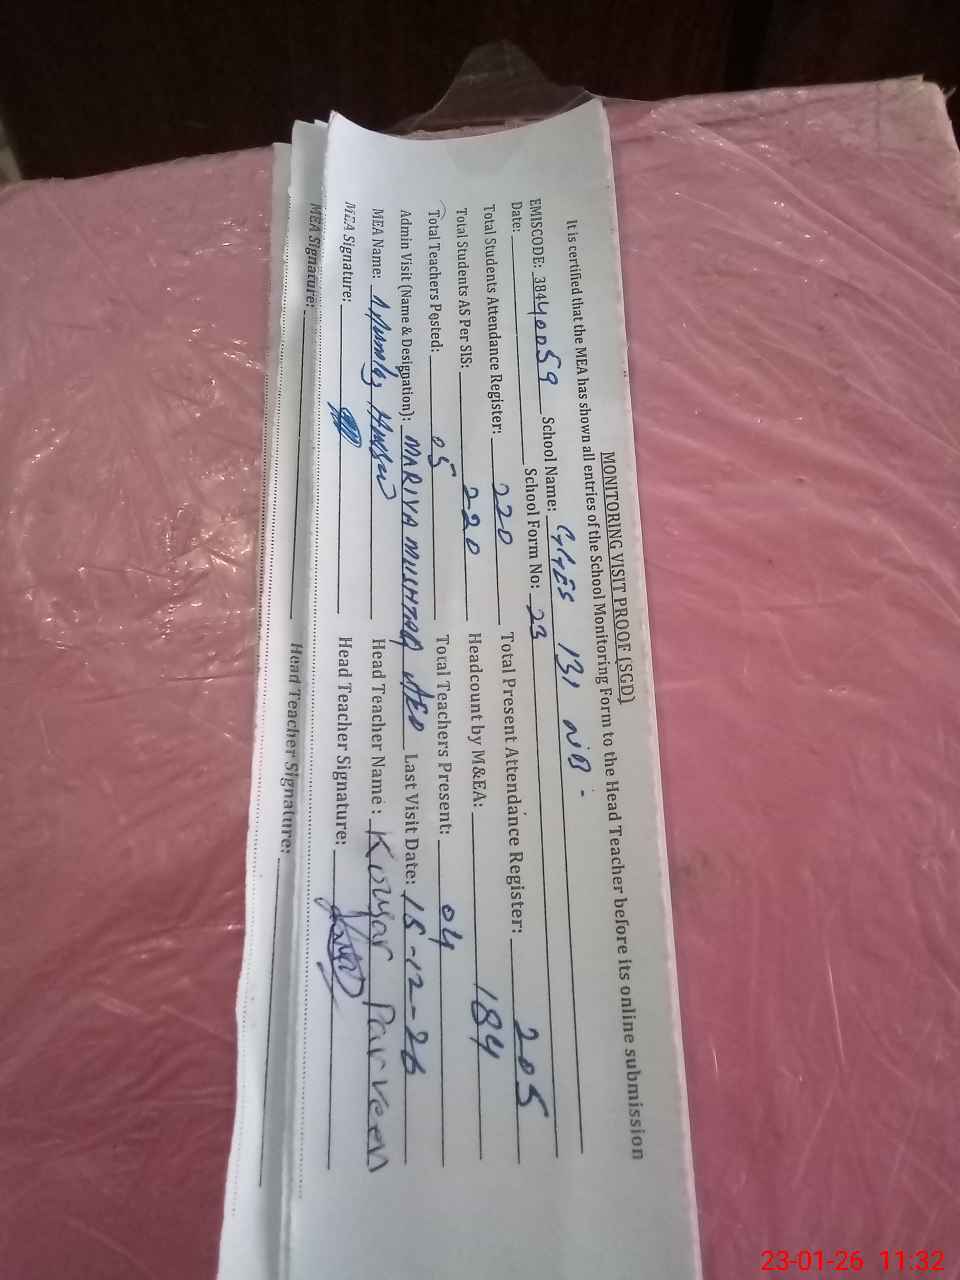 MONITORING VISIT PROOF (SGD)
It is certified that the MEA has shown all entries of the School Monitoring Form to the Head Teacher before its online submission
EMISCODE: 38440059 School Name: GGES 131 NB
Date: School Form No: 23
Total Students Attendance Register: 220 Total Present Attendance Register: 205
Total Students AS Per SIS: 220 Headcount by M&EA: 184
Total Teachers Posted: 05 Total Teachers Present: 04
Admin Visit (Name & Designation): MARIYA MUSHTAQ AEO Last Visit Date: 15-12-26
MEA Name: Head Teacher Name: Parveen
MEA Signature: Head Teacher Signature:
MEA Signature: Head Teacher Signature:
23-01-26 11:32